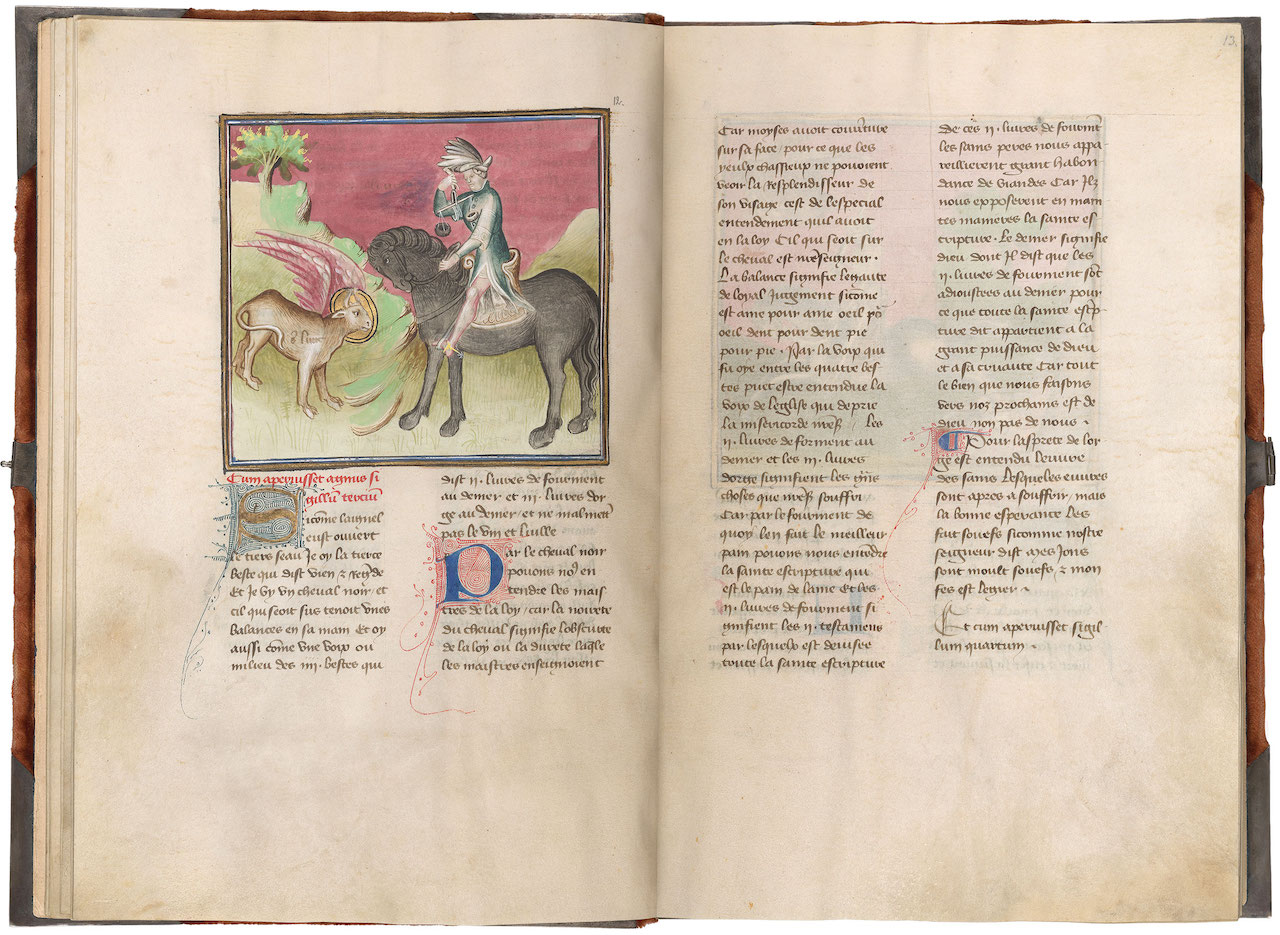 12.
S. luc
Cum aperuisset agnus si
gillu terciu
Sicome laignel
eust ouvert
le tiers seau Je oy la tierce
beste qui dist vien & regde
Et Je vy vn cheval noir / et
cil qui seoit sus tenoit vnes
balances en sa main Et oy
aussi come vne voix ou
milieu des iiii. bestes qui
dist ii. livres de fourment
au denier et iii livres dor
ge au denier / et ne malmett
pas le vin et luille
Par le cheval noir
pouons no9 en
tendre les mais
tres de la loy / car la noirete
du cheval signifie lobscurte
de la loy ou la durete laqle
les maistres enseignoient
13.
Car moyses auoit couuerture
sur sa face / pour ce que les
yeulx chassieux ne pouoient
veoir la resplendisseur de
son visage cest de lespecial
entendement quil auoit
en la loy Cil qui seoit sur
le cheval est nreseigneur .
La balance signifie legaute
de loyal Jugement sicome
est ame pour ame oeil po
oeil dent pour dent pie
pour pie . Par la voix qui
fu oye entre les quatre bes
tes puet estre entendue la
voix de leglise qui deprie
la misericorde nres Les
ii. livres de forment au
denier et les iii. livres
dorge signifient les
choses que nres souffri /
Car par le fourment de
quoy len fait le meilleur
pain pouons nous entedre
la sainte escripture qui
est le pain de lame Et les
ii. livres de fourment si
gnifient les ii. testamens
par lesquelx est deuisee
toute la sainte escripture
de ces ii. livres de fourmt
les sains peres nous appa
reillierent grant habon
dance de viandes Car Ilz
nous exposerent en main
tes manieres la sainte es
cripture . Le denier signifie
dieu dont Il dist que les
ii. livres de fourment sot
adioustees au denier pour
ce que toute la sainte escrip
ture dit appartient a la
grant puissance de dieu
et a sa Car tout
le bien que nous faisons
vers noz prochains est de
dieu non pas de nous .
Pour lasprete de lor
ge est entendu leuure
des sains Lesqueles euures
sont aspres a souffrir / mais
la bonne esperance les
fait souefs sicomme nostre
seigneur dist mes Jous
sont moult souefs / & mon
fes est legier .
Et cum aperuisset sigil
lum quartum .